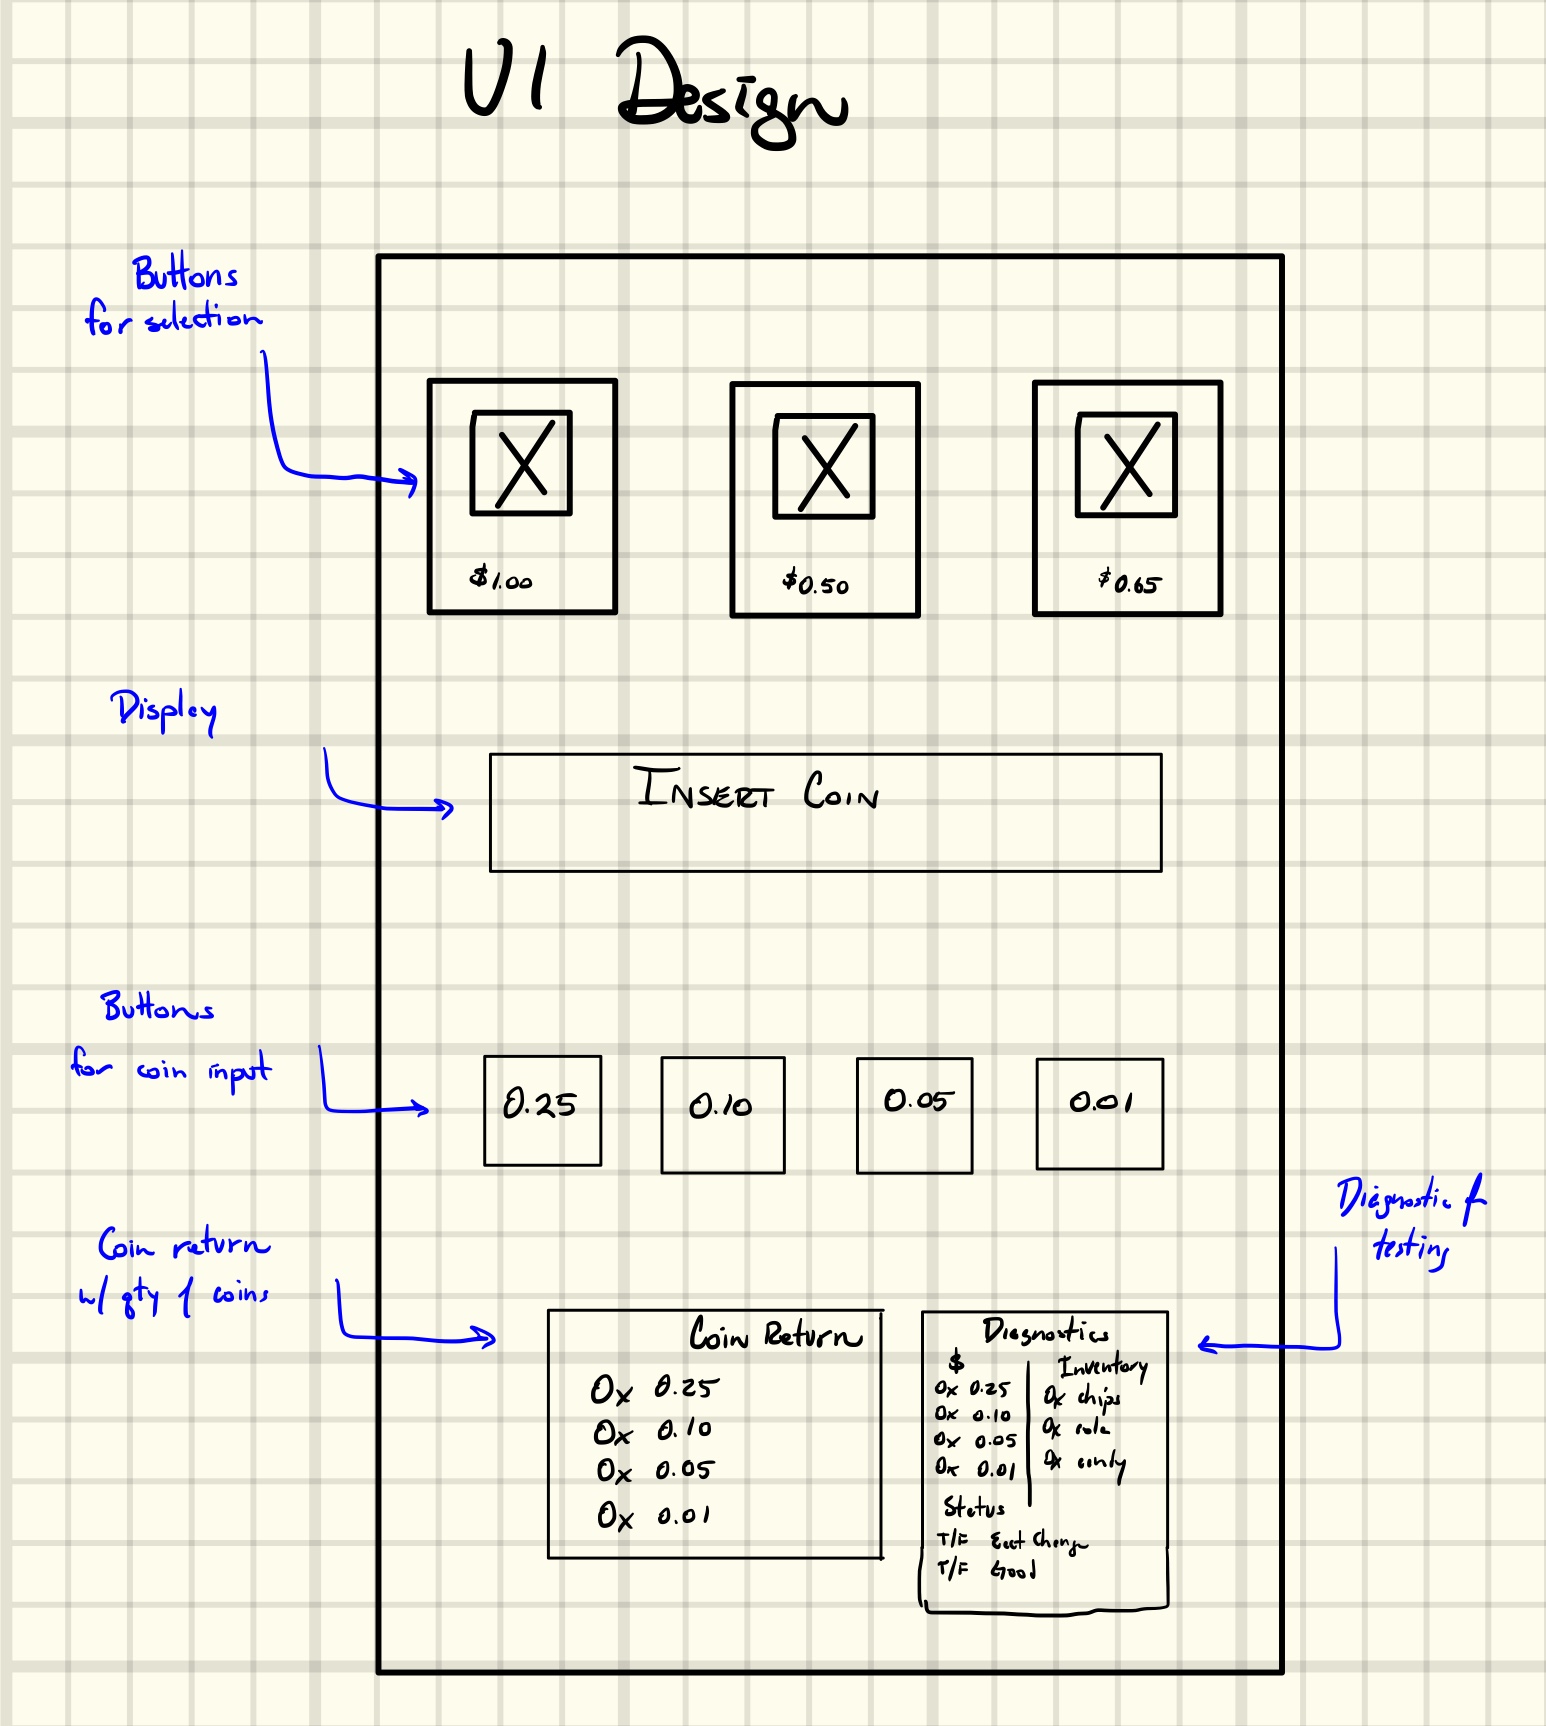 UI Design
Buttons
for selection
$1.00
$0.50
$0.65
Display
INSERT COIN
Buttons
for coin input
0.25
0.10
0.05
0.01
Coin return
w/ qty of coins
Coin Return
0x 0.25
0x 0.10
0x 0.05
0x 0.01
Diagnostic &
testing
Diagnostics
$
0x 0.25
0x 0.10
0x 0.05
0x 0.01
Inventory
0x chips
0x
0x
Status
T/F Change
T/F Good